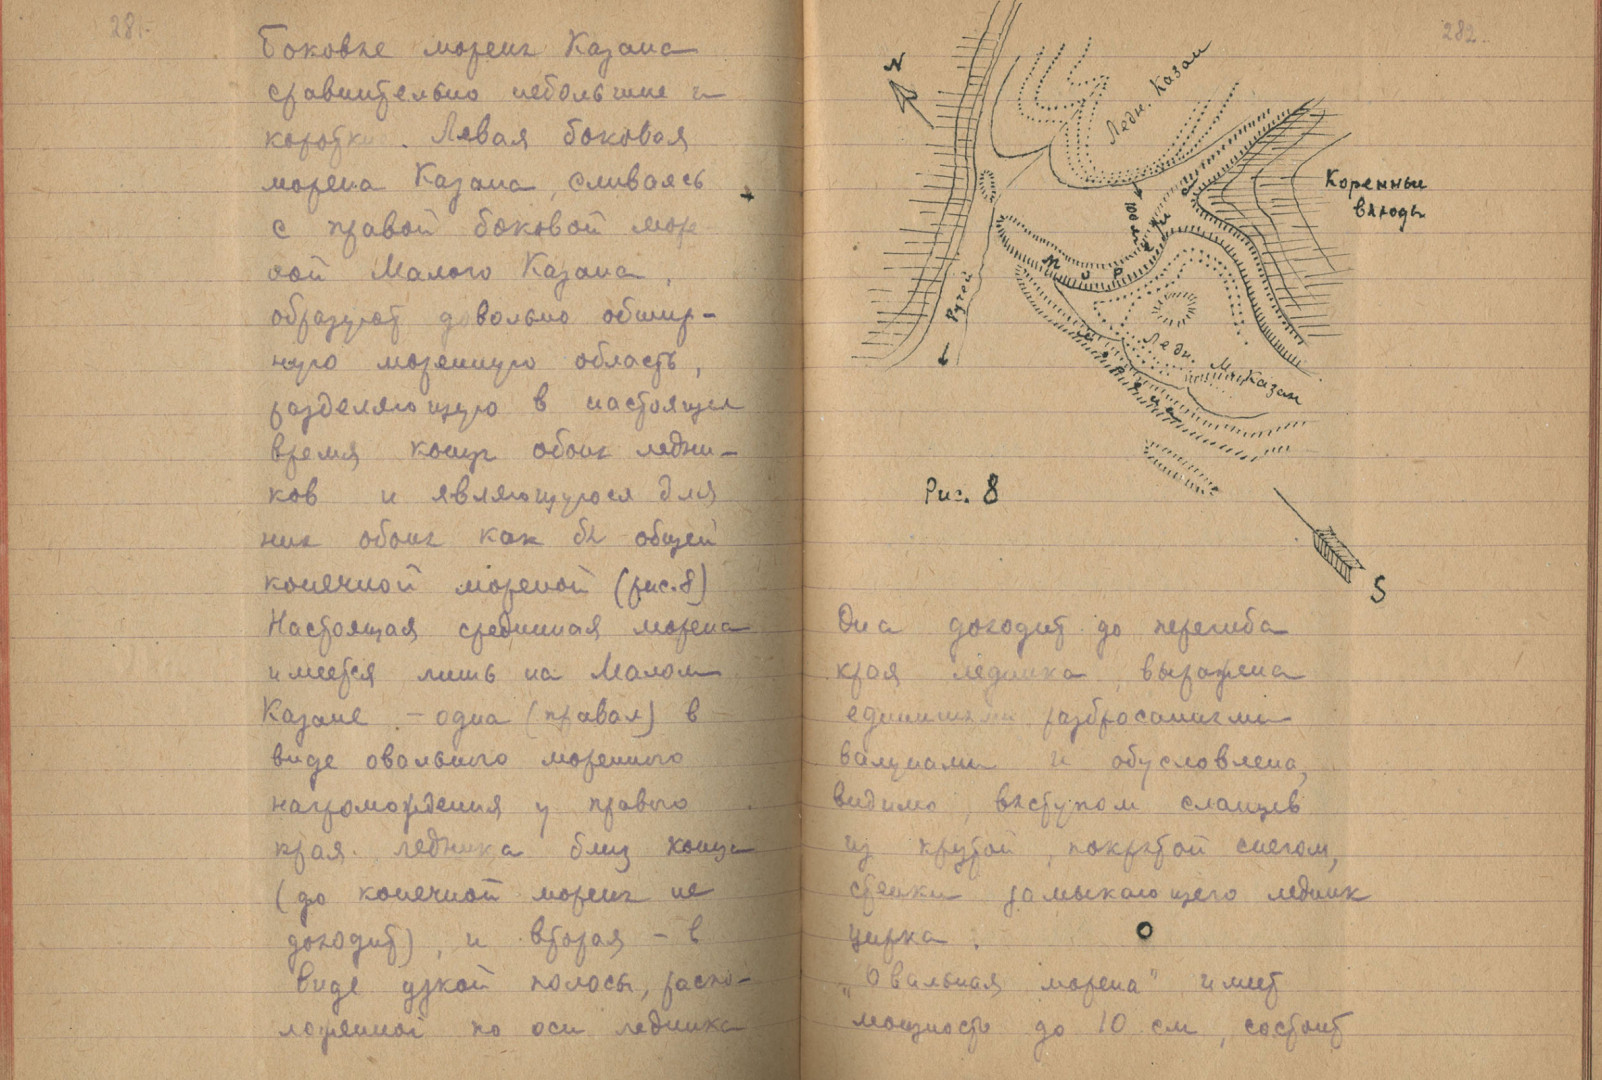 281.
Боковые морены Казана
сравнительно небольшие и
коротки. Левая боковая
морена Казана, сливаясь
с правой боковой море
ной Малого Казана,
образуют довольно обшир-
ную моренную область,
разделяющую в настоящее
время концы обоих ледни-
ков и являющуюся для
них обоих как бы общей
конечной мореной (рис. 8)
Настоящая срединная морена
имеется лишь на Малом
Казане – одна (правая) в
виде овального моренного
нагромождения у правого
края ледника близ конца
(до конечной морены не
доходит), и вторая – в
виде узкой полосы, распо-
ложенной по оси ледника
282.
N
Ледн. Казан
Коренные
выходы
100 м
Ручей
Ледн. М. Казан
Рис. 8
S
Она доходит до перегиба
края ледника, выражена
единичными разбросанными
валунами и обусловлена,
видимо, выступом сланцев
из крутой, покрытой снегом,
стенки замыкающего ледник
цирка.
"Овальная морена" имеет
мощность до 10 см, состоит